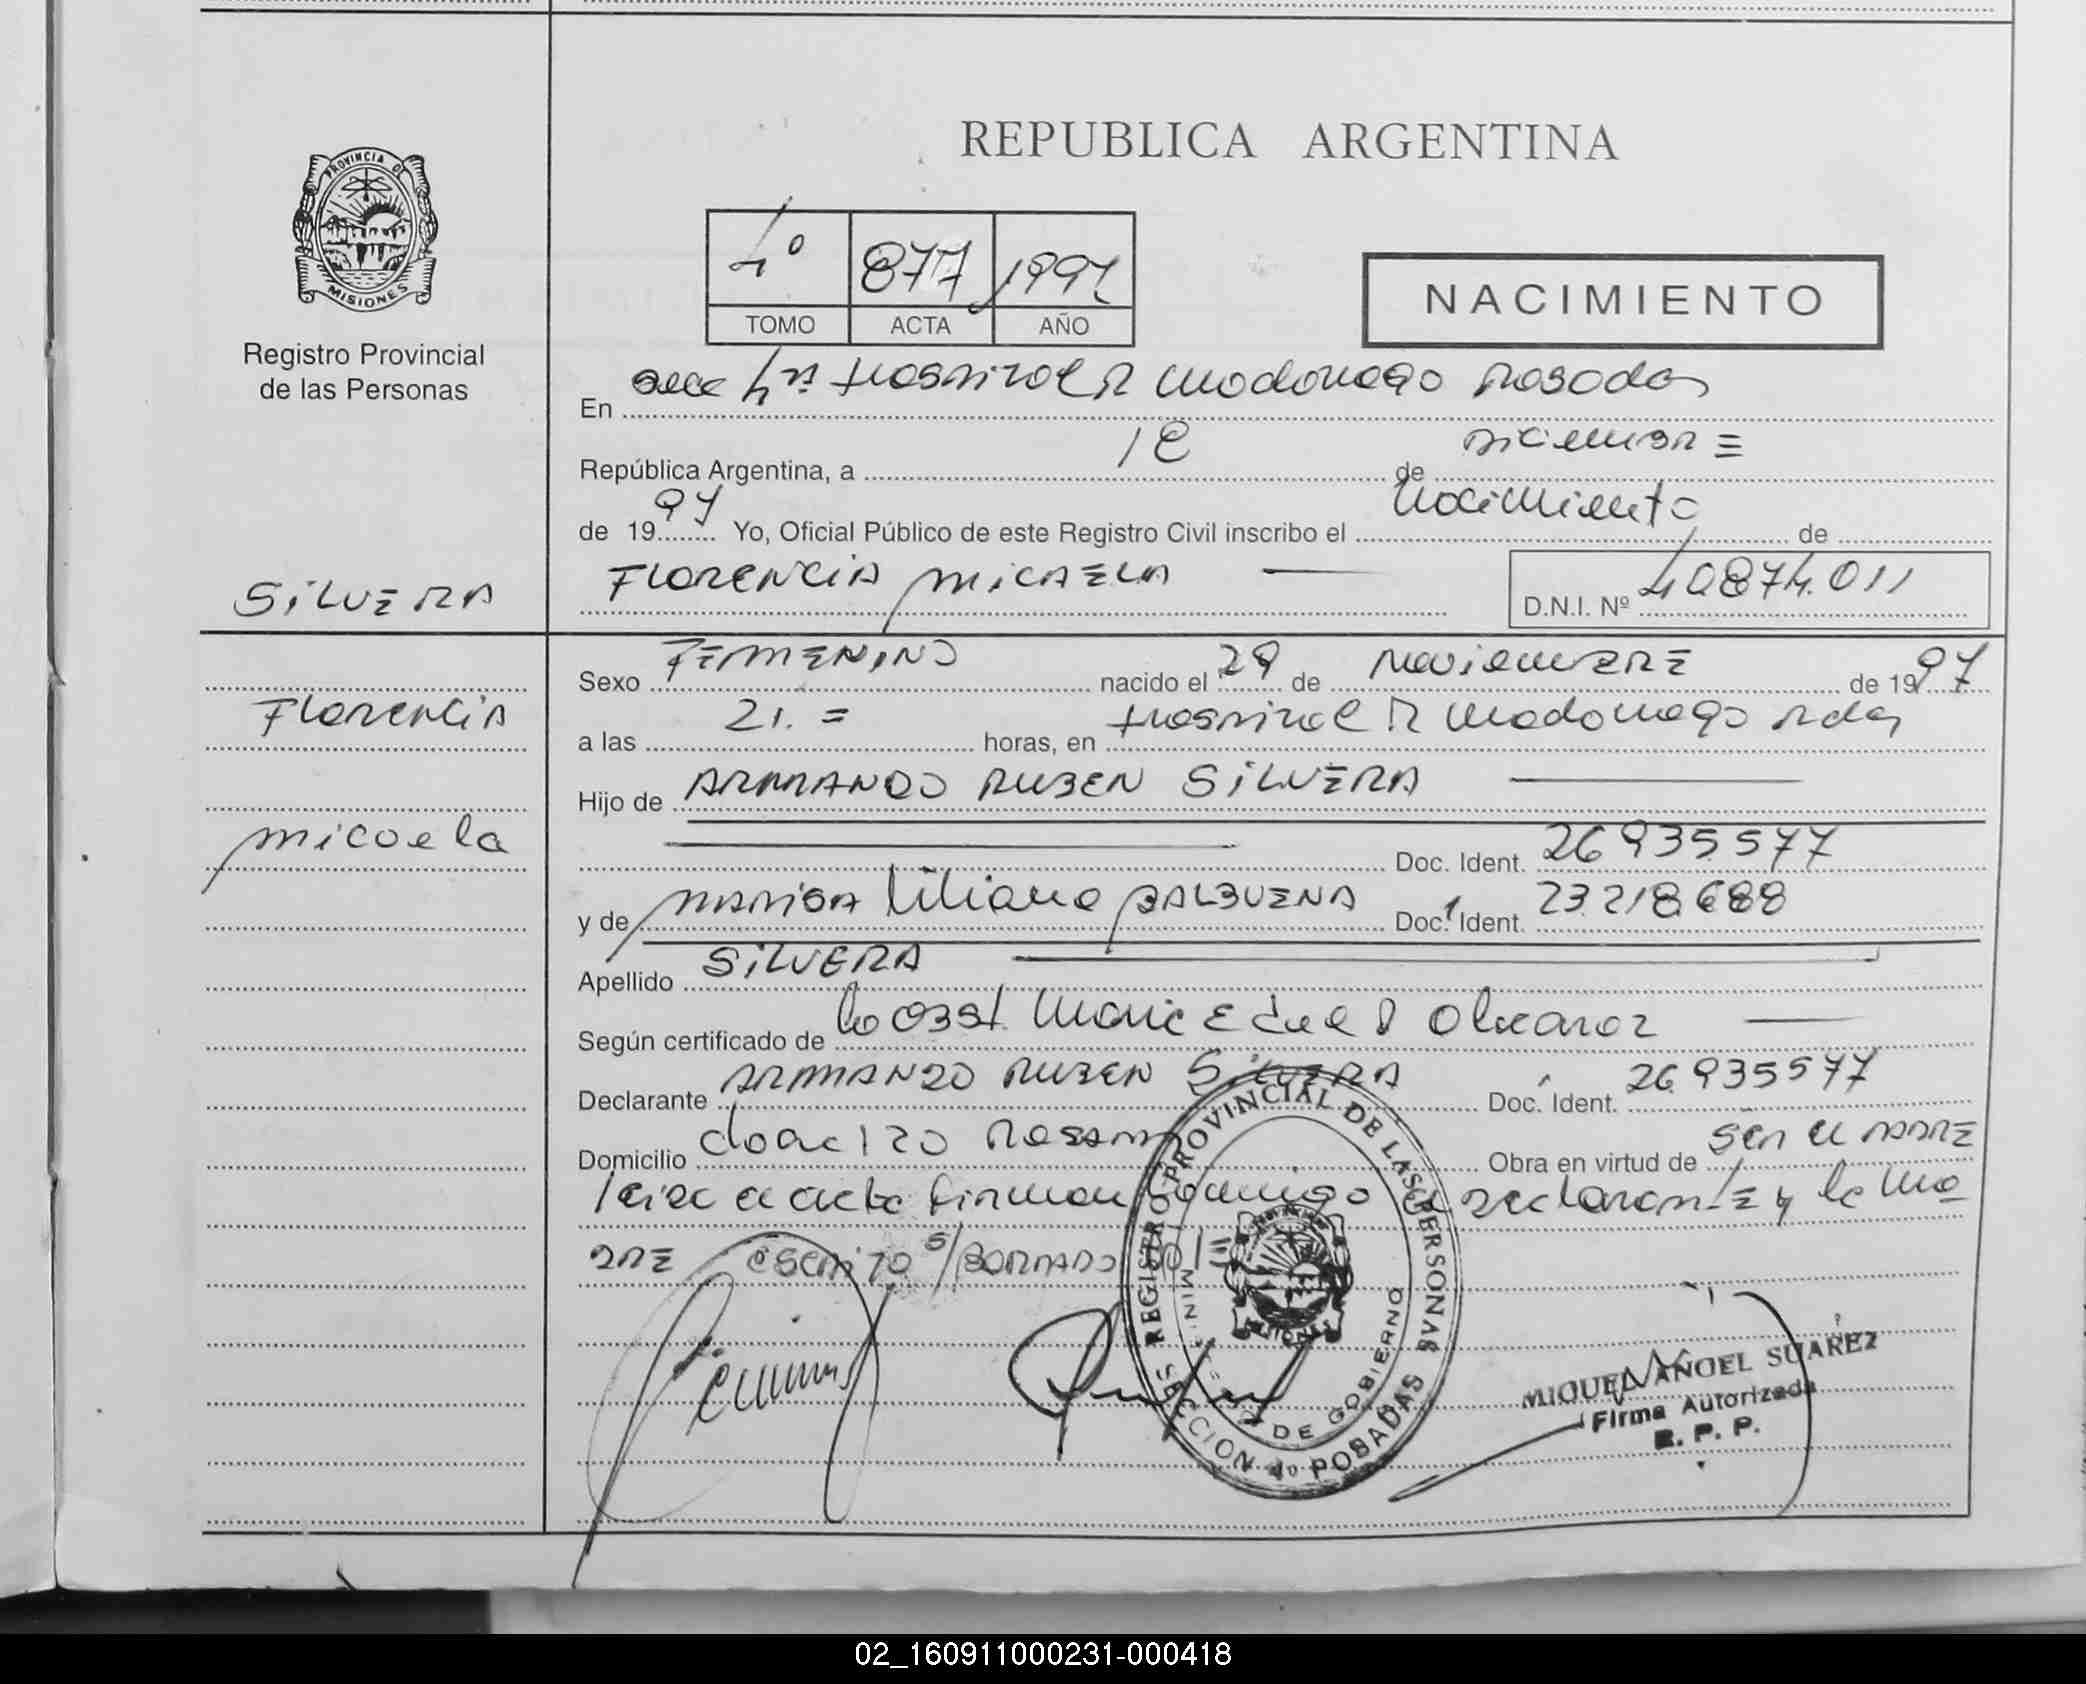 REPUBLICA ARGENTINA
PROVINCIA DE
MISIONES
Registro Provincial
de las Personas
4º 877 1997
TOMO ACTA AÑO
NACIMIENTO
En secc 4ta Hospital R Madariaga Posadas
República Argentina, a 18 de DiciemBRE
de 1997 Yo, Oficial Público de este Registro Civil inscribo el nacimiento de
SILVERA
FLORENCIA MICAELA
D.N.I. Nº 40874.011
Sexo FEMENINO nacido el 29 de NoviemBRE de 1997
FLORENCIA
a las 21. = horas, en Hospital R Madariaga Pdas
Hijo de ARMANDO RUBEN SILVERA
micaela
Doc. Ident. 26935577
y de MARISA Liliana BALBUENA Doc. Ident. 23.218.688
Apellido SILVERA
Según certificado de la OBST. Maria E
Declarante ARMANDO RUBEN SILVERA Doc. Ident. 26.935577
Domicilio 120 Obra en virtud de ser el PADRE
leida el acta firman conmigo el DeclaranTE y la ma
DRE escrito s/BORRADO
REGISTRO PROVINCIAL DE LAS PERSONAS
MINISTERIO DE GOBIERNO
MISIONES
SECCION 4º POSADAS
MIGUEL ANGEL SUAREZ
Firma Autorizada
R. P. P.
02_160911000231-000418